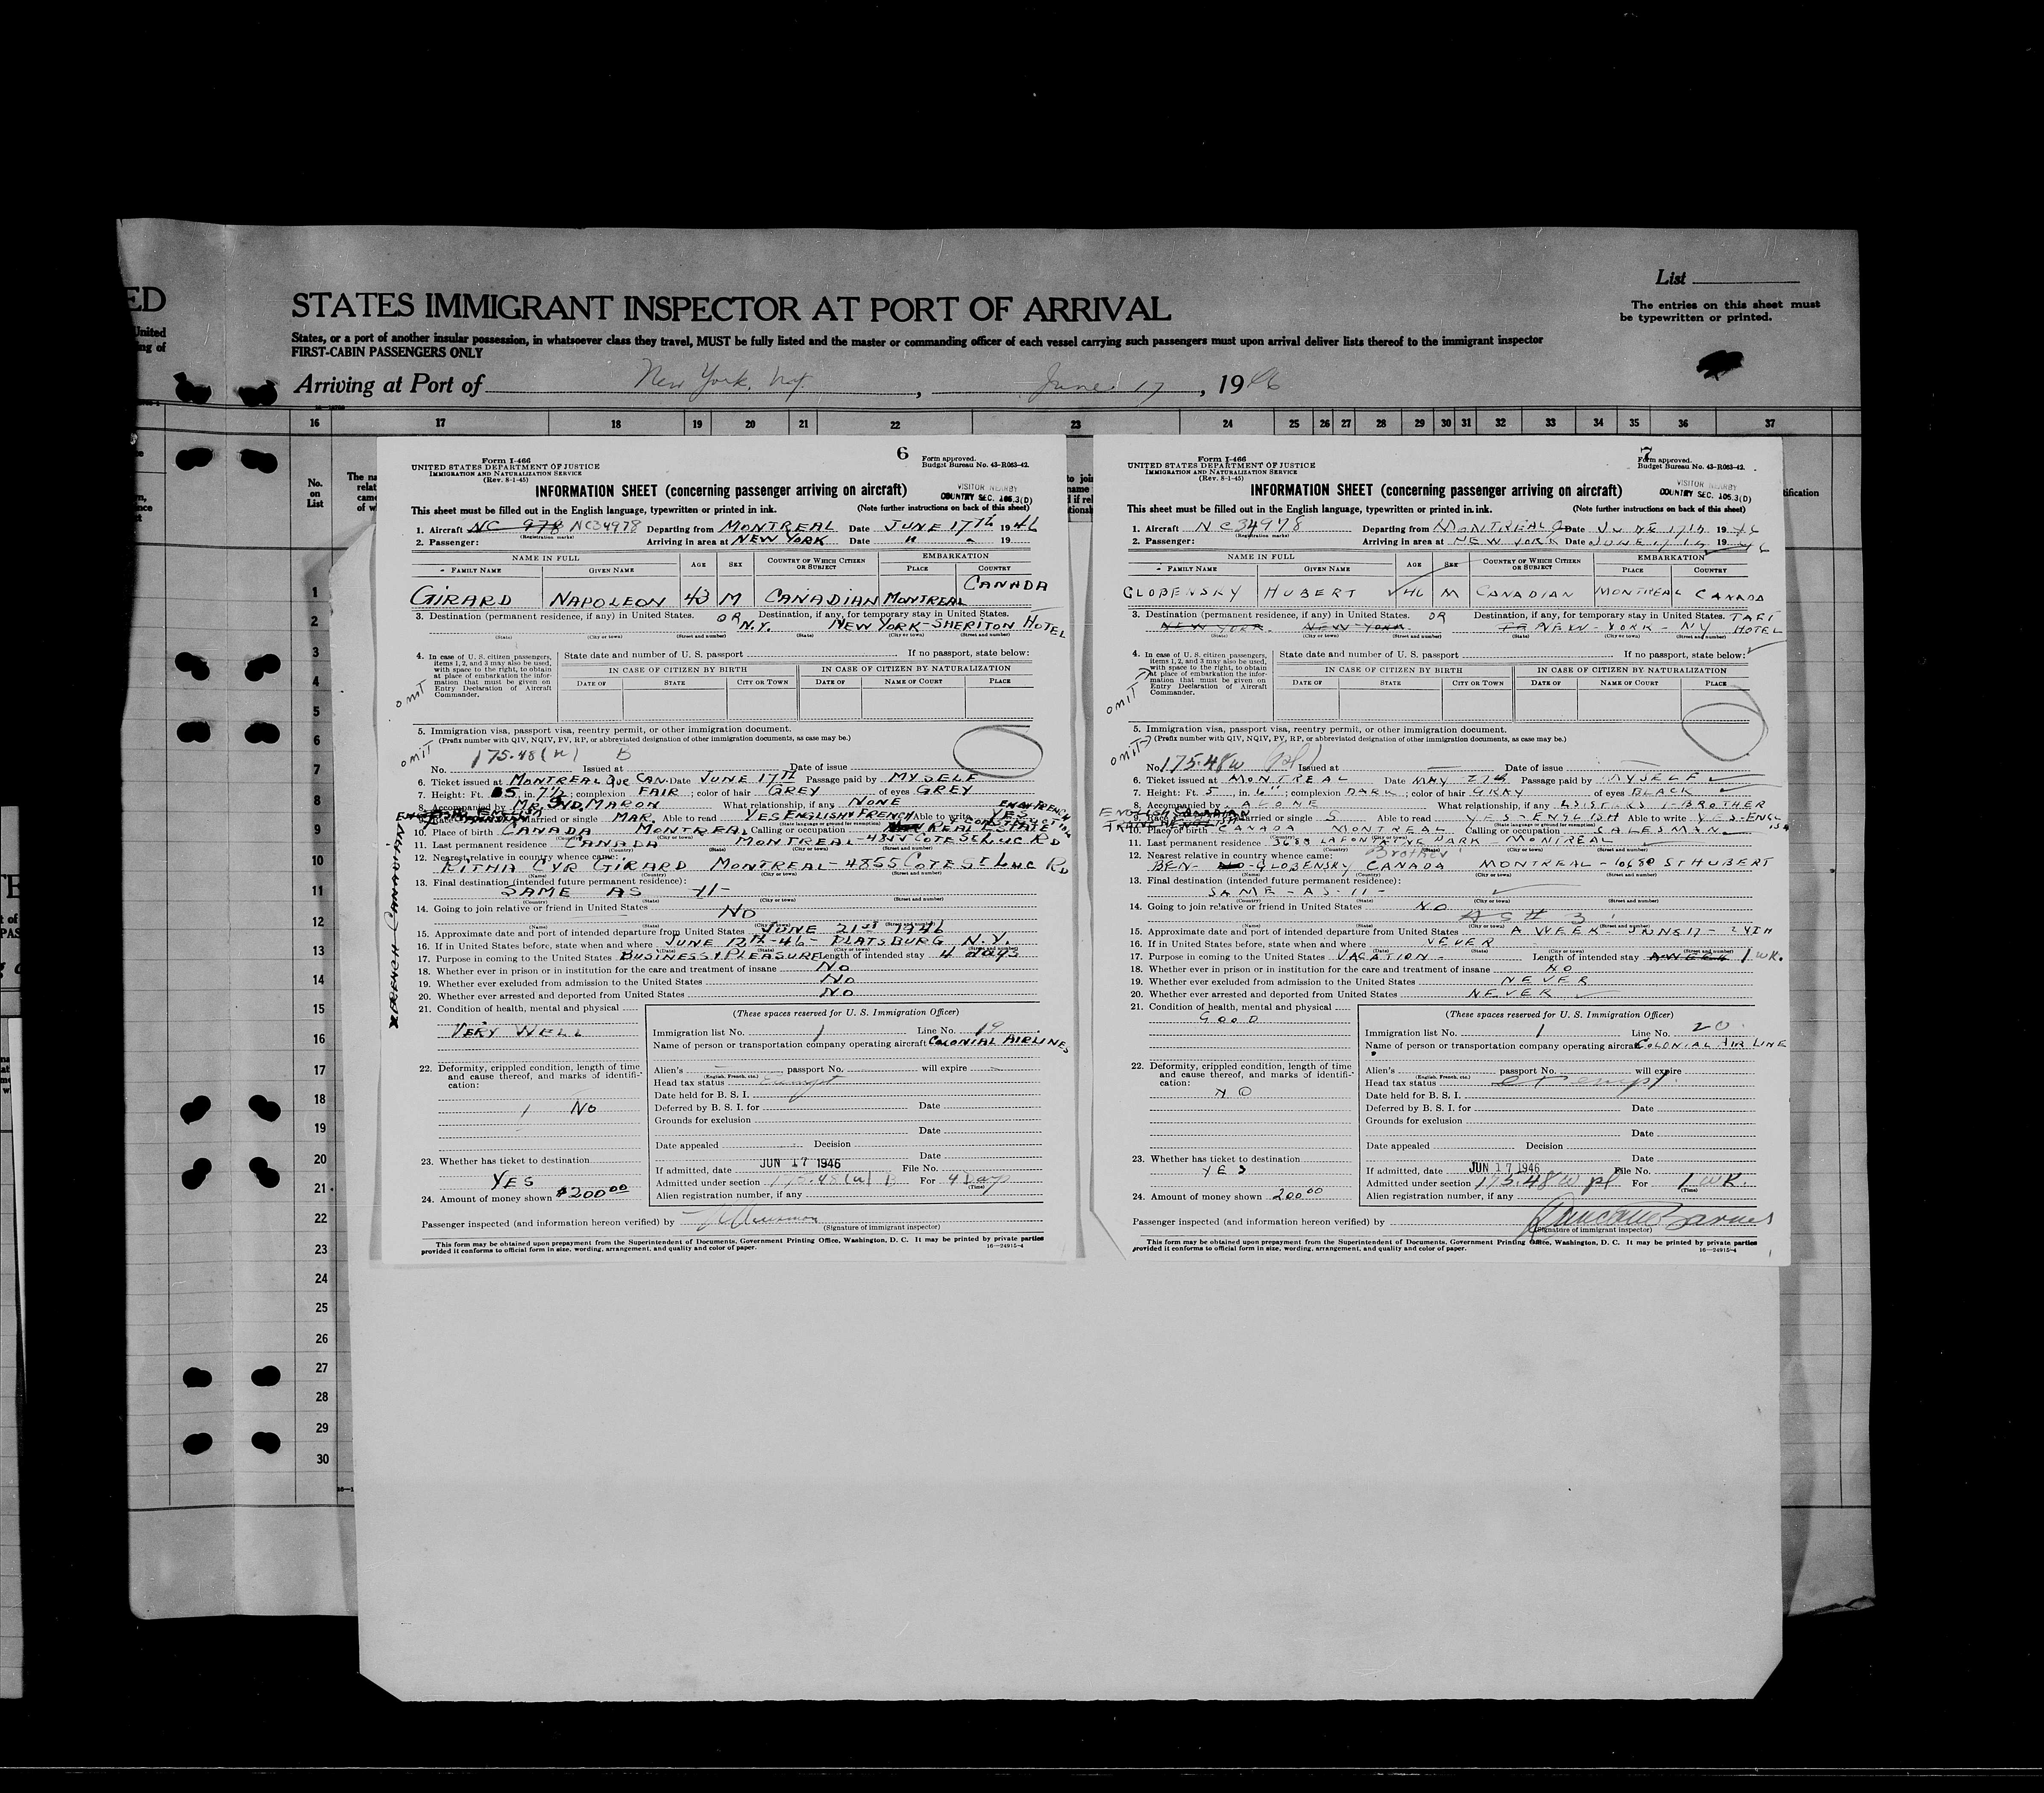 ED
United
ing of
List
STATES IMMIGRANT INSPECTOR AT PORT OF ARRIVAL
The entries on this sheet must
be typewritten or printed.
States, or a port of another insular possession, in whatsoever class they travel, MUST be fully listed and the master or commanding officer of each vessel carrying such passengers must upon arrival deliver lists thereof to the immigrant inspector
FIRST-CABIN PASSENGERS ONLY
Arriving at Port of New York, N.Y. , June 17 , 1946
16 17 18 19 20 21 22 23 24 25 26 27 28 29 30 31 32 33 34 35 36 37
No.
on
List
1
2
3
4
5
6
7
8
9
10
11
12
13
14
15
16
17
18
19
20
21
22
23
24
25
26
27
28
29
30
6
Form I-466
UNITED STATES DEPARTMENT OF JUSTICE
IMMIGRATION AND NATURALIZATION SERVICE
(Rev. 8-1-45)
Form approved.
Budget Bureau No. 43-R063-42.
INFORMATION SHEET (concerning passenger arriving on aircraft)
VISITOR NEARBY
COUNTRY SEC. 105.3(D)
This sheet must be filled out in the English language, typewritten or printed in ink. (Note further instructions on back of this sheet)
1. Aircraft NC 978 NC34978 Departing from MONTREAL Date JUNE 17TH 1946
(Registration marks)
2. Passenger: Arriving in area at NEW YORK Date " 19
NAME IN FULL AGE SEX COUNTRY OF WHICH CITIZEN OR SUBJECT EMBARKATION
FAMILY NAME GIVEN NAME PLACE COUNTRY
GIRARD NAPOLEON 43 M CANADIAN MONTREAL CANADA
3. Destination (permanent residence, if any) in United States. OR Destination, if any, for temporary stay in United States.
N.Y. NEW YORK-SHERITON HOTEL
(State) (City or town) (Street and number) (State) (City or town) (Street and number)
4. In case of U. S. citizen passengers, items 1, 2, and 3 may also be used, with space to the right, to obtain at place of embarkation the information that must be given on Entry Declaration of Aircraft Commander.
State date and number of U. S. passport If no passport, state below:
IN CASE OF CITIZEN BY BIRTH IN CASE OF CITIZEN BY NATURALIZATION
DATE OF STATE CITY OR TOWN DATE OF NAME OF COURT PLACE
OMIT
5. Immigration visa, passport visa, reentry permit, or other immigration document.
(Prefix number with QIV, NQIV, PV, RP, or abbreviated designation of other immigration documents, as case may be.)
OMIT
No. 175.48(w) B Issued at Date of issue
6. Ticket issued at MONTREAL Que CAN. Date JUNE 17TH Passage paid by MYSELF
7. Height: Ft. 5 in. 7½; complexion FAIR; color of hair GREY of eyes GREY
8. Accompanied by MR. D. MARON What relationship, if any NONE
9. Race Married or single MAR. Able to read YES ENGLISH FRENCH Able to write YES
FRENCH CANADIAN
10. Place of birth CANADA MONTREAL Calling or occupation REAL ESTATE
11. Last permanent residence CANADA MONTREAL-4855 COTE ST LUC RD
12. Nearest relative in country whence came:
RITHA CYR GIRARD MONTREAL-4855 COTE ST LUC RD
13. Final destination (intended future permanent residence):
SAME AS -11-
14. Going to join relative or friend in United States NO
15. Approximate date and port of intended departure from United States JUNE 21ST 1946
16. If in United States before, state when and where JUNE 12TH-46-PLATSBURG N.Y.
17. Purpose in coming to the United States BUSINESS & PLEASURE Length of intended stay 4 days
18. Whether ever in prison or in institution for the care and treatment of insane NO
19. Whether ever excluded from admission to the United States NO
20. Whether ever arrested and deported from United States NO
21. Condition of health, mental and physical
VERY WELL
22. Deformity, crippled condition, length of time and cause thereof, and marks of identification:
NO
23. Whether has ticket to destination
YES
24. Amount of money shown $200.00
(These spaces reserved for U. S. Immigration Officer)
Immigration list No. 1 Line No. 19
Name of person or transportation company operating aircraft COLONIAL AIRLINES
Alien's passport No. will expire
(English, French, etc.)
Head tax status exempt
Date held for B. S. I.
Deferred by B. S. I. for Date
Grounds for exclusion
Date
Date appealed Decision
Date
If admitted, date JUN 17 1946 File No.
Admitted under section 175.48(w) B For 4 Days
(Time)
Alien registration number, if any
Passenger inspected (and information hereon verified) by
(Signature of immigrant inspector)
This form may be obtained upon prepayment from the Superintendent of Documents, Government Printing Office, Washington, D. C. It may be printed by private parties
provided it conforms to official form in size, wording, arrangement, and quality and color of paper. 16—24915-4
7
Form I-466
UNITED STATES DEPARTMENT OF JUSTICE
IMMIGRATION AND NATURALIZATION SERVICE
(Rev. 8-1-45)
Form approved.
Budget Bureau No. 43-R063-42.
INFORMATION SHEET (concerning passenger arriving on aircraft)
VISITOR NEARBY
COUNTRY SEC. 105.3(D)
This sheet must be filled out in the English language, typewritten or printed in ink. (Note further instructions on back of this sheet)
1. Aircraft NC34978 Departing from MONTREAL Date JUNE 17TH 1946
(Registration marks)
2. Passenger: Arriving in area at NEW YORK Date JUNE 17TH 1946
NAME IN FULL AGE SEX COUNTRY OF WHICH CITIZEN OR SUBJECT EMBARKATION
FAMILY NAME GIVEN NAME PLACE COUNTRY
GLOBENSKY HUBERT 46 M CANADIAN MONTREAL CANADA
3. Destination (permanent residence, if any) in United States. OR Destination, if any, for temporary stay in United States. TAFT
NEW YORK. NEW-YORK. NEW-YORK-NY HOTEL
(State) (City or town) (Street and number) (State) (City or town) (Street and number)
4. In case of U. S. citizen passengers, items 1, 2, and 3 may also be used, with space to the right, to obtain at place of embarkation the information that must be given on Entry Declaration of Aircraft Commander.
State date and number of U. S. passport If no passport, state below:
IN CASE OF CITIZEN BY BIRTH IN CASE OF CITIZEN BY NATURALIZATION
DATE OF STATE CITY OR TOWN DATE OF NAME OF COURT PLACE
OMIT
5. Immigration visa, passport visa, reentry permit, or other immigration document.
(Prefix number with QIV, NQIV, PV, RP, or abbreviated designation of other immigration documents, as case may be.)
OMIT
No. 175.48w pl Issued at Date of issue
6. Ticket issued at MONTREAL Date MAY 27th Passage paid by MYSELF
7. Height: Ft. 5, in. 6"; complexion DARK; color of hair GRAY of eyes BLACK
8. Accompanied by ALONE What relationship, if any 4 SISTERS 1-BROTHER
9. Race Married or single S Able to read YES-ENGLISH Able to write YES-ENGLISH
10. Place of birth CANADA MONTREAL Calling or occupation SALESMAN
11. Last permanent residence 3688 LAFONTAINE PARK MONTREAL
12. Nearest relative in country whence came: Brother
BEN-GLOBENSKY CANADA MONTREAL-10680 ST HUBERT
13. Final destination (intended future permanent residence):
SAME-AS-11-
14. Going to join relative or friend in United States NO
AS # 3
15. Approximate date and port of intended departure from United States A WEEK-JUNE 17-24TH
16. If in United States before, state when and where NEVER
17. Purpose in coming to the United States VACATION- Length of intended stay A WEEK 1 WK.
18. Whether ever in prison or in institution for the care and treatment of insane NO
19. Whether ever excluded from admission to the United States NEVER
20. Whether ever arrested and deported from United States NEVER
21. Condition of health, mental and physical
GOOD
22. Deformity, crippled condition, length of time and cause thereof, and marks of identification:
NO
23. Whether has ticket to destination
YES
24. Amount of money shown 200.00
(These spaces reserved for U. S. Immigration Officer)
Immigration list No. 1 Line No. 20
Name of person or transportation company operating aircraft COLONIAL AIR LINE
Alien's passport No. will expire
(English, French, etc.)
Head tax status exempt
Date held for B. S. I.
Deferred by B. S. I. for Date
Grounds for exclusion
Date
Date appealed Decision
Date
If admitted, date JUN 17 1946 File No.
Admitted under section 175.48w pl For 1 WK.
(Time)
Alien registration number, if any
Passenger inspected (and information hereon verified) by
(Signature of immigrant inspector)
This form may be obtained upon prepayment from the Superintendent of Documents, Government Printing Office, Washington, D. C. It may be printed by private parties
provided it conforms to official form in size, wording, arrangement, and quality and color of paper. 16—24915-4